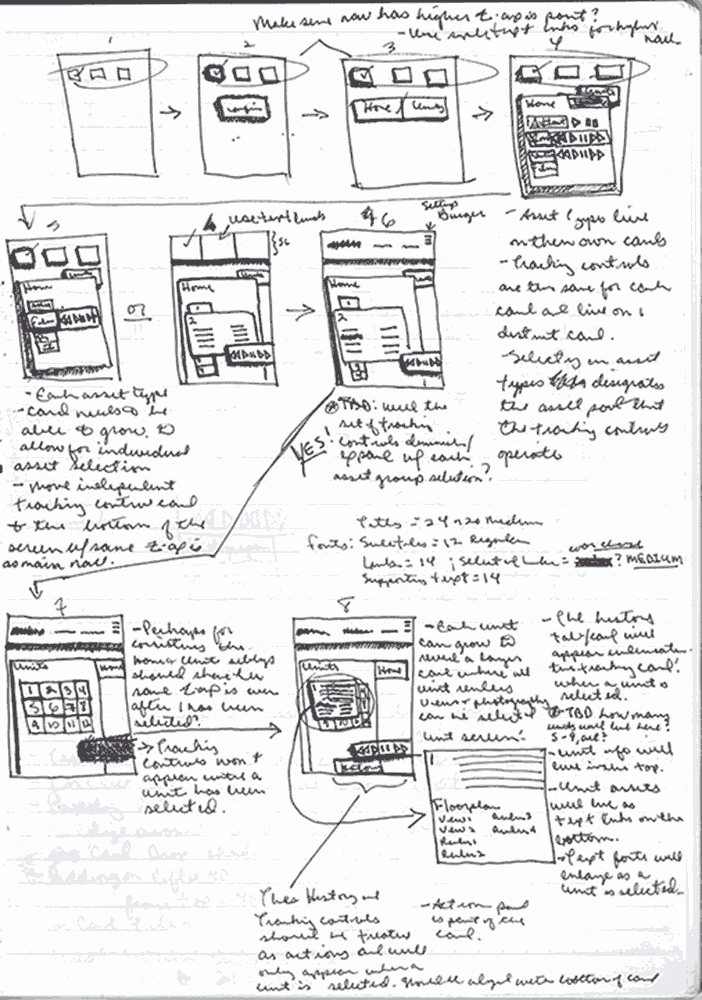 Make sure nav has higher z-axis point?
- Use smaller text links for higher nav.
1
2
3
4
Login
Home / Units
Units
Home
5
6
Use text links
56
Setup Burger
Home
Units
Home
2
Home
2
or
- Asset types live
on their own cards
- Tracking controls
are the same for each
card and live on 1
distinct card.
- Selecting an asset
types designates
the asset pool that
the tracking controls
operate
- Each asset type
- card needs to be
able to grow to
allow for individual
asset selection
- Move independent
tracking control card
to the bottom of the
screen w/ same z-axis
as main nav.
YES!
TBD: will the
set of tracking
controls diminish/
expand w/ each
asset group selection?
Titles = 24 >20 Medium
Fonts: Subtitles = 12 Regular
Links = 14 ; Selected Links = ? MEDIUM
Supporting text = 14
7
Units
Home
1 2 3 4
5 6 7 8
9 10 11 12
- Perhaps for
consistency the
home & unit
should share the
same z-axis even
after 1 has been
selected?
→ Tracking
controls won't
appear until a
unit has been
selected.
8
Units
Home
1
9 10 11 12
History
- Each unit
can grow to
reveal a larger
card where all
unit renders
views & photography
can be selected
Unit screen:
1
Floorplan
View 1 Render 3
View 2 Render 4
Render 1
Render 2
- The history
tab/card will
appear underneath
the tracking card
when a unit is
selected.
TBD how many
units will live here?
5-9, all?
- Unit info will
live in the top.
- Unit assets
will live as
text links on the
bottom.
- Text fonts will
enlarge as a
unit is selected.
The History and
Tracking controls
should be treated
as actions and will
only appear when a
unit is selected. Should be aligned with bottom of card
- Action pool
is part of the
card.